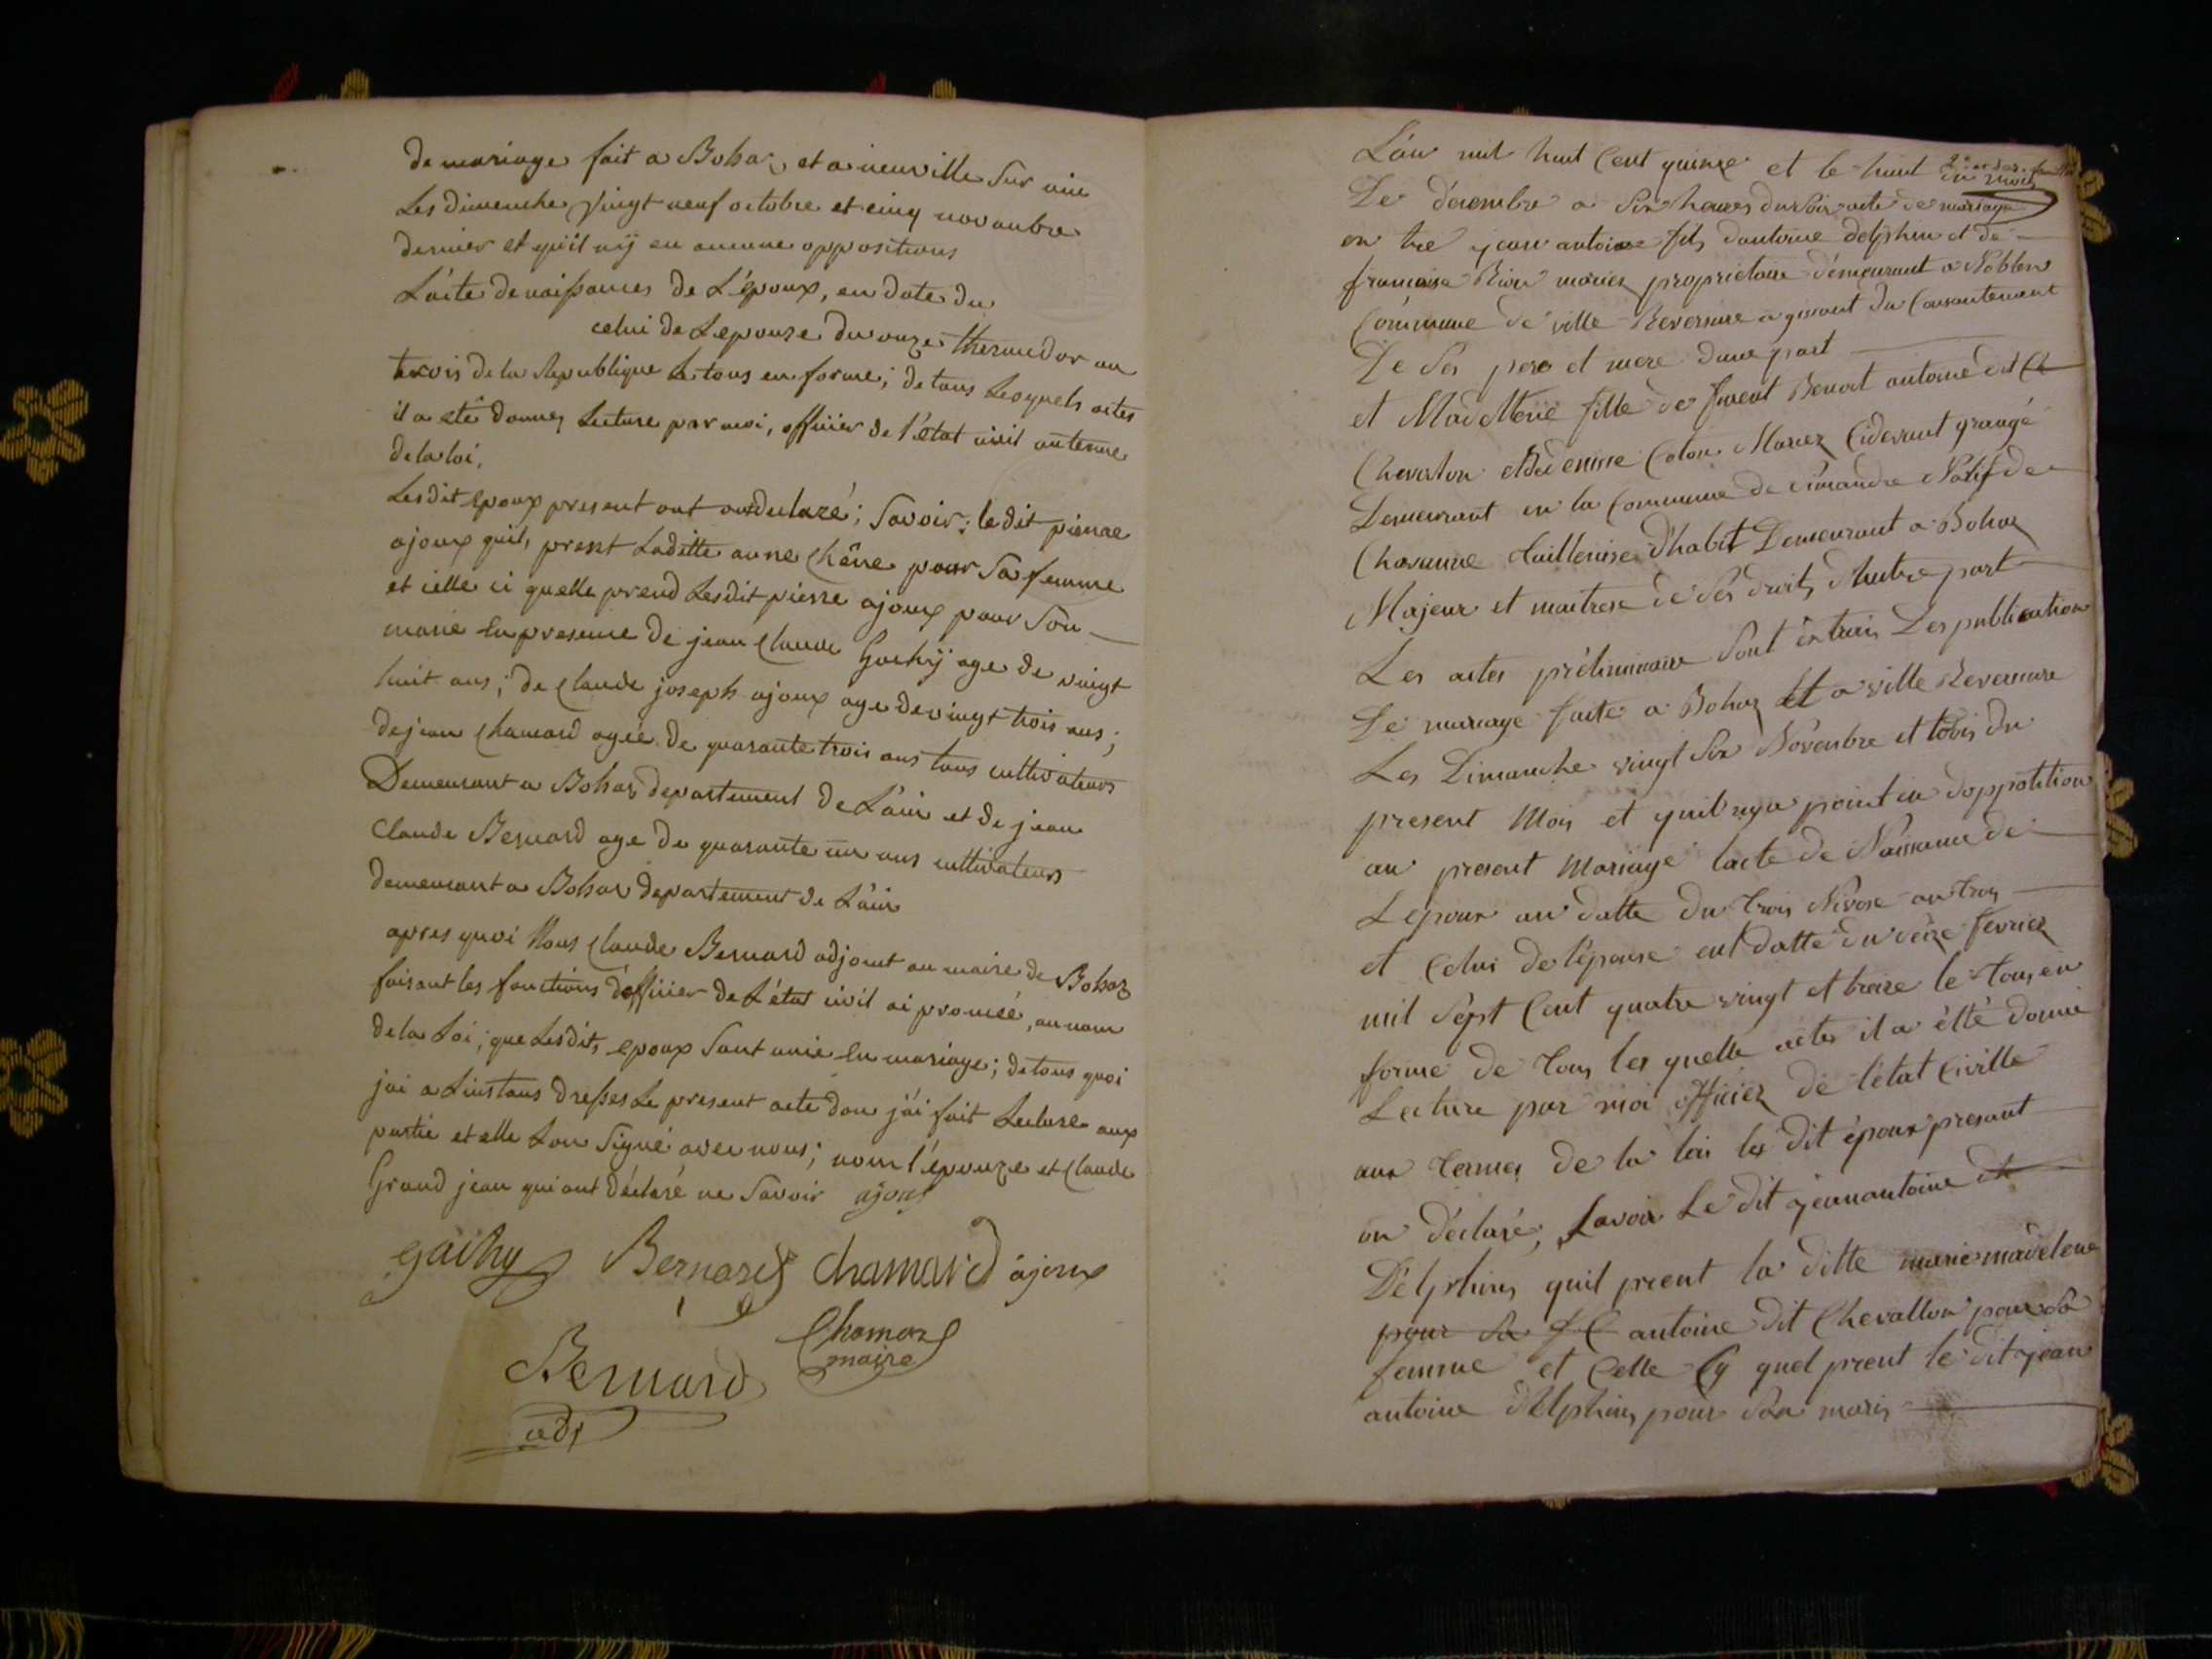 de mariage fait a Bohaz et a neuville Sur ain
Les dimenche vingt neuf octobre et cinq novanbre
dernier et qu'il nÿ eu aucune oppositions
L'acte de naissances de L'époux, en date du
celui de Lepouze du onze thermidor an
trois de la Republique le tous en forme; de tous Lesquels actes
il a été donnez Lecture par moi, officier de l'état civil au terme
de la loi,
Lesdit Epoux present ont declaré; Savoir; le dit pierre
ajoux quil, prent Laditte anne Chêne pour Sa femme
et celle ci quelle prend Lesdit pierre ajoux pour Son
marie En presence de jean Claude Gachÿ age de vingt
huit ans; de Claude joseph ajoux age de vingt trois ans;
de jean Chamard agée de quarante trois ans tous cultivateurs
Demeurant a Bohas departement De L'ain et de jean
Claude Bernard age de quarante un ans cultivateurs
demeurant a Bohas departement de L'ain
apres quoi Nous Claude Bernard adjoint au maire de Bohaz
faisant les fonctions d'officier de L'état civil ai proncé, au nom
de la Loi; que Lesdits epoux Sont unie En mariage; de tous quoi
jai a Linstans dresses Le present acte don j'ai fait Lecture aux
partie et elle Lon Signé avec nous; nom l'épouze et Claude
Grand jean qui ont déclaré ne Savoir ajoux
gachy Bernard chamard ajoux
Chamar
maire
Bernard
adj
L'an mil huit Cent quinze et le huit du mois
De décembre a Six heures du Soir acte de mariage
en tre jean antoine fils dantoine delphin et de
francoise Rion mariez proprietaire démeurant a Noblen
Commune de ville Reversure agissant du Consantement
De Ses pere et mere d'une part
et Mad fille de Benoit antoine dit
Chevallon Colon Mariez Cidevant grangé
Demeurant en la Commune de simandre Natif de
Chavanne Tailleuise d'habit Demeurant a Bohaz
Majeur et maitrese de Ses droits d'Autre part
Les actes préliminaire Sont extrais Des publication
De mariage faite a Bohaz et a ville Reversure
Les Dimanche vingt Six Novenbre et tois du
present Mois et quil nya point eu doppotition
au present Mariage lacte de Naissance de
Lepoux au datte du trois Nivose an trois
et Celui de l'épouse ent datte du séize fevriez
mil Sept Cent quatre vingt et treize le tous en
forme de tous les quelle actes il a étté donné
Lecture par moi officiez de l'état Civille
aux termes de la loi les dit époux presant
on déclaré, Savoir Le dit jeanantoine
Delphins quil prent la ditte marie madelene
pour Sa antoine dit Chevallon pour Sa
femme et Celle Cy quel prent le dit jean
antoine delphins pour Son maris